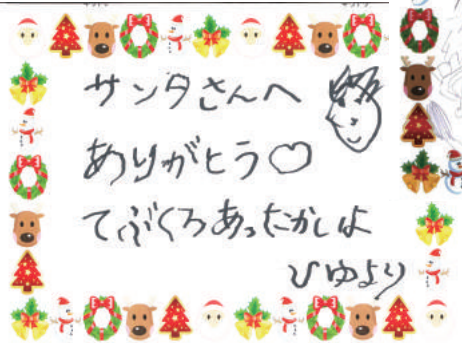 サンタさんへ
ありがとう♡
てぶくろあったかいよ
ひゆより